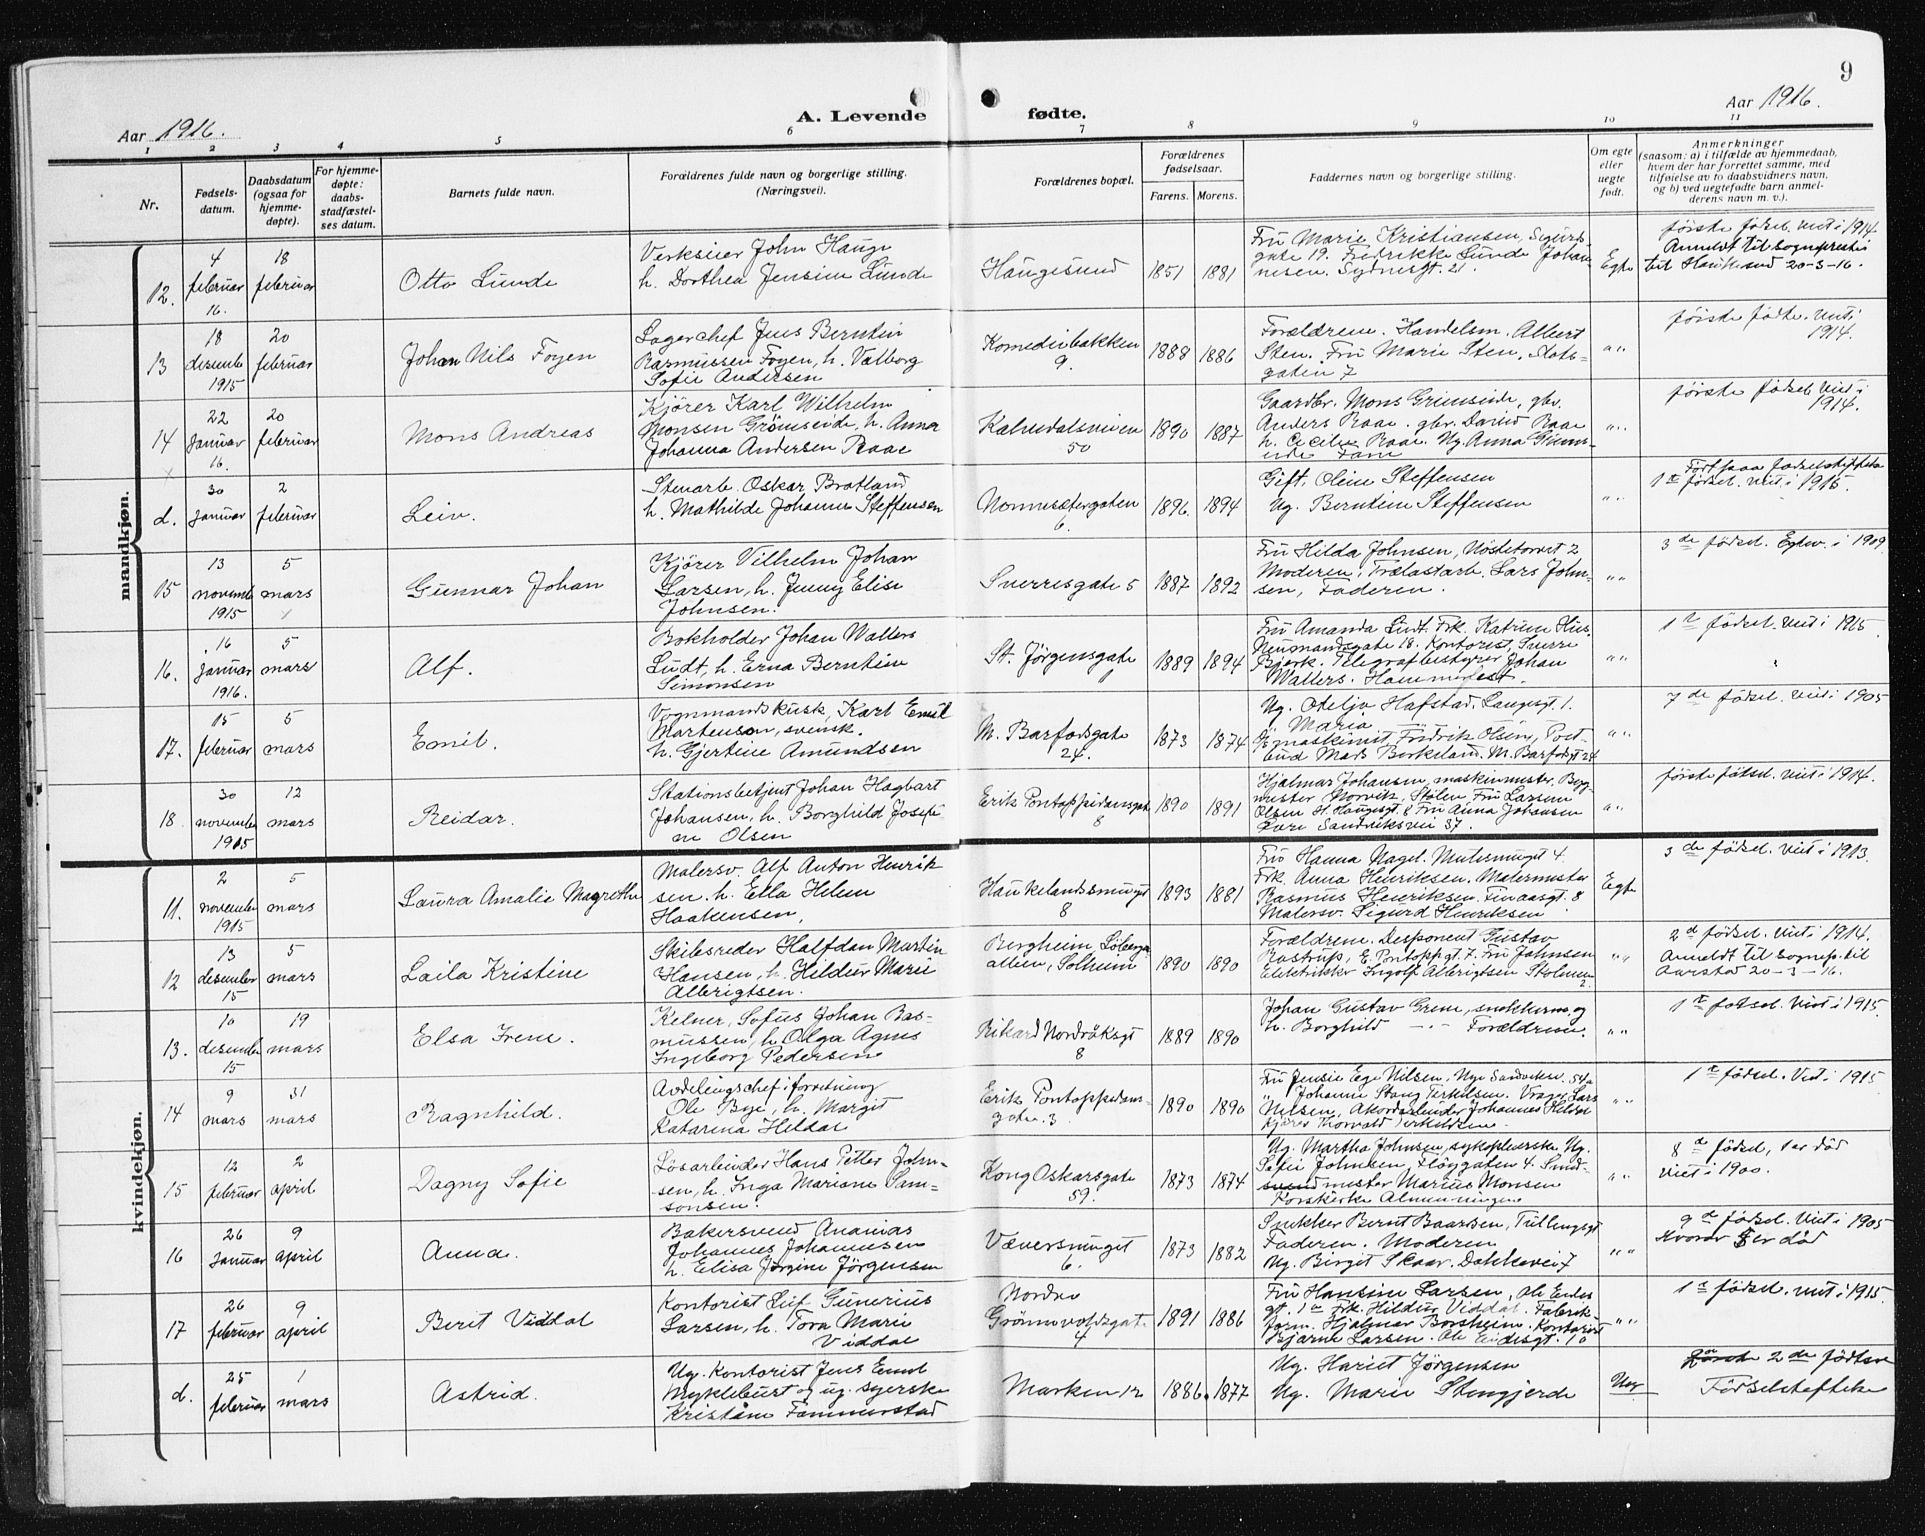 9
Aar 1916.
A. Levende
fødte.
Aar 1916.
1 2 3 4 5 6 7 8 9 10 11
Nr.
Fødsels-
datum.
Daabsdatum
(ogsaa for
hjemme-
døpte).
For hjemme-
døpte:
daabs-
stadfæstel-
ses datum.
Barnets fulde navn.
Forældrenes fulde navn og borgerlige stilling.
(Næringsvei).
Forældrenes bopæl.
Forældrenes
fødselsaar.
Farens. Morens.
Faddernes navn og borgerlige stilling.
Om egte
eller
uegte
født.
Anmerkninger
(saasom: a) i tilfælde av hjemmedaab,
hvem der har forrettet samme, med
tilføielse av to daabsvidners navn,
og b) ved uegtefødte barn anmel-
derens navn m. v.).
mandkjøn.
12.
4
februar
16.
18
februar
Otto Lunde
Verkseier John Hauge
h. Dorthea Jensine Lunde
Haugesund
1851 1881
Fru Marie Kristiansen, Sigurds-
gate 19. Fredrikke Lunde Johan-
nesen. Sydnesgt. 21.
Egte
første fødsel. viet i 1914
Anmeldt til sogneprest i
til 20-3-16.
13
18
desembr
1915
20
februar
Johan Nils Foyen
Lagerchef Jens Berntin
Rasmussen Foyen, h. Valborg
Sofie Andersen
Komediebakken
9.
1888 1886
Forældrene. Handelsm. Albert
Sten. Fru Marie Sten, Slots-
gaten 7
" "
første fødse. viet i
1914.
14
22
Januar
16.
20
februar
Mons Andreas
Kjører Karl Wilhelm
Monsen Grimseide, h. Anna
Johanna Andersen Raae
Kalvedalsveien
50
1890 1887
Gaardbr. Mons Grimseide, gbr.
Anders Raae. gbr. David Raae
h. Cecilie Raae. Ug. Anna Grims-
eide Fane
" "
første fødsel viet i
1914.
d.
30
Januar
2
februar
Leiv.
Stenarb. Oskar Bratland
h. Mathilde Johanne Steffensen
Nonnesætergaten
6.
1896. 1894
Gift, Oline Steffensen
Ug. Berntine Steffensen
" "
Født paa fødselsstiftelse
1ste fødsel. viet i 1915.
15
13
novemb
1915
5
mars
Gunnar Johan
Kjører Vilhelm Johan
Larsen, h. Jenny Elise
Johnsen.
Sverresgate 5
1887 1892
Fru Hilda Johnsen, Nøstetorvet 2
Moderen, Trælastarb. Lars John-
sen, Faderen.
" "
3de fødsel. Egtev. i 1909.
16.
16
Januar
1916.
5
mars
Alf.
Bokholder Johan Walters
Ludt, h. Erna Berntine
Simonsen
St. Jørgensgate
9
1889 1894
Fru Amanda Ludt. Frk. Katrine Hus,
Neumandsgate 18. Kontorist, Sverre
Bjerk. Telegrafbestyrer Johan
Walters. Hammerfest.
" "
1ste fødsel. viet i 1915.
17.
15
februar
5
mars
Emil.
Vognmandskusk, Karl Emil
Martenson, svensk.
h. Gjertine Amundsen
M. Barfodsgate
24.
1873 1874
Ug. Otelje Hafstad, Langesgt. 1.
Maria
Eg maskinist Fredrik Olsen, Post-
bud Mads Birkeland. M. Barfodsgt 24
" "
7de fødsel. viet i 1905
18.
30
november
1915
12
mars
Reidar.
Stationsbetjent Johan Hagbart
Johansen, h. Borghild Josefi-
ne Olsen
Erik Pontoppidansgate
8
1890 1891
Hjalmar Johansen, maskinmester. Byg-
mester i Norvik, Stølen Fru Larsine
Olsen St. Haugesgt. 8 Fru Anna Johansen
Øvre Sandviksvei 37.
" "
første fødsel. viet i 1914.
kvindekjøn.
11.
2
november
1915
5
mars
Laura Amalie Magrethe
Malersv. Alf Anton Henrik-
sen. h. Ella Helene
Haakensen,
Haukelandssmuget
8
1893 1881
Fru Hanna Nagel. Mutesmuget 4.
Frk. Anna Henriksen. Malermester
Rasmus Henriksen. Finaasgt. 8
Malersv. Sigurd Henriksen
Egte
3de fødsel. viet i 1913.
12
13
desember
15
5
mars
Laila Kristine
Skibsreder Halfdan Martin
Hansen, h. Hildur Marie
Albrigtsen.
Bergheim, Løberg-
alleen, Solheim
1890 1890
Forældrene. Disponent Gustav
Rastrup, E. Pontoppgt. 7. Fru Johnsen
Elektriker Ingolf Albrigtsen Skolmen
2.
" "
2d fødsel. viet i 1914.
Anmeldt til sognep. til
Aarstad 20-3-16.
13.
10
desember
15
19
mars
Elsa Irene.
Kelner, Sofus Johan Ras-
mussen, h. Olga Agnes
Ingeborg Pedersen
Rikard Nordråksgt
8
1889 1890
Johan Gustav Grene, snekkersv. og
h. Borghild -"- Forældrene.
" "
1ste fødsel. viet i 1915.
14
9
mars
31
mars
Ragnhild.
Avdelingschef i forretning
Ole Bye, h. Margit
Katarina Heldal
Erik Pontoppidans-
gate. 3
1890 1890
Fru Jensie Ege Nilsen, Nye Sandviksv. 54a
" Johanne Stang Terkilsen. Lars
Nilsen, Akordarbeider Johannes Heldal
Kjører Thorvald Terkildsen.
" "
1ste fødsel. Viet i 1915
15
12
februar
2
april
Dagny Sofie
Løsarbeider Hans Petter John-
sen, h. Inga Mariane Sam-
sonsen.
Kong Oskarsgate
59.
1873 1874
Ug. Martha Johnsen, sykepleierske. Ug.
Sofie Johnsen, Fløygaten 4. Smed-
mester Marius Monsen
Korskirke Almenningen
" "
8d fødsel, 1 er død
viet i 1900.
16
26
Januar
9
april
Anna.
Bakersvend Ananias
Johannes Johannesen
h. Elisa Jørgine Jørgensen
Væversmuget
6.
1873 1882
Snekker Bernt Baardsen, Tullinsgt.
Faderen. Moderen
Ug. Birgit Skaar. Dokkevei 7
" "
9d fødsel. Viet i 1905
hvorav 5 er død
17
26
februar
9
april
Berit Viddal
Kontorist Leif Gunerius
Larsen, h. Tora Marie
Viddal
Nordre
Grønnevoldsgat.
4
1891 1886
Fru Hansine Larsen, Ole Irgens
gt. 1a Frk. Hildur Viddal. Fabrik-
form. Hjalmar Borsheim. Kontorist
Bjarne Larsen. Ole Irgensgt. 1a
" "
1ste fødsel. viet i 1915.
d.
25
februar
1
mars
Astrid.
Ug. Kontorist Jens Emil
Myklebust og ug. syerske
Kristine Tommerstad
Marken 12
1886. 1877
Ug. Hariet Jørgensen
Ug. Marie Stengjerde
Ueg
første 2de fødsel
Fødselstiftelse